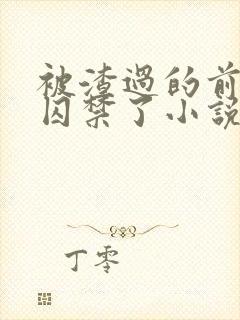 被渣過的前
囚禁了小説
丁零